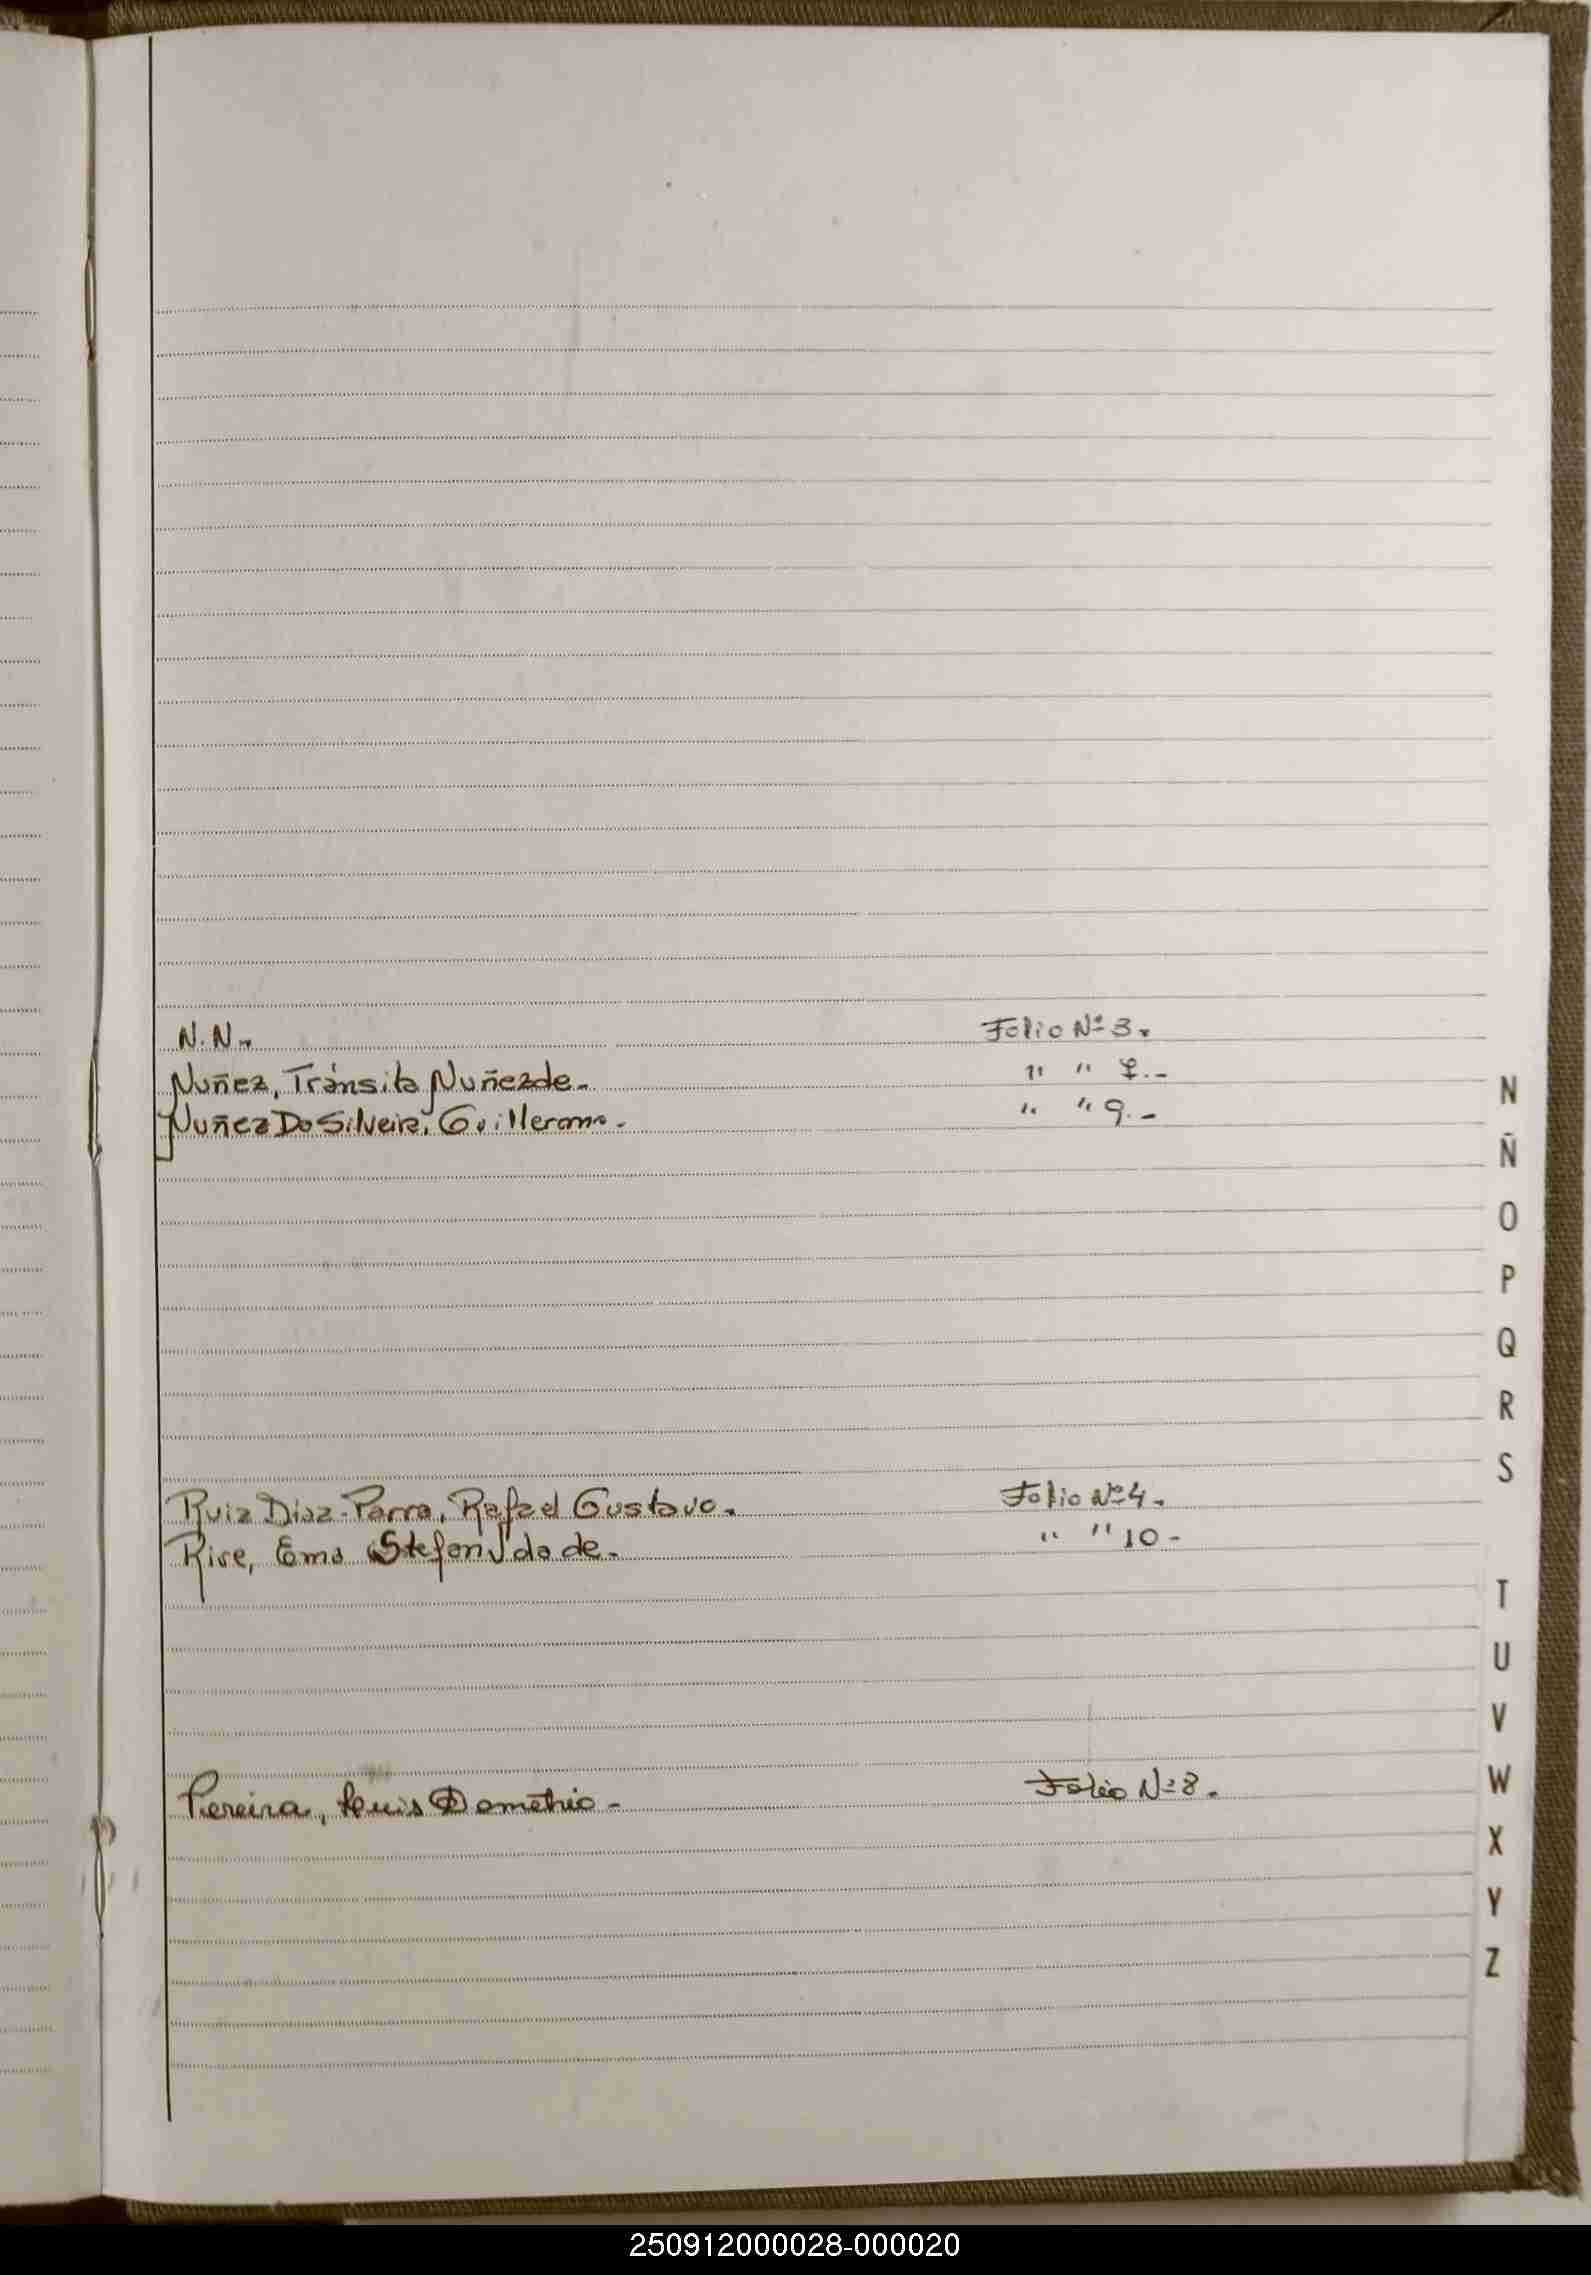 N.N.. Folio Nº 3.
Nuñez, Tránsita Nuñez de.- " " 7.-
Nuñez Da Silveira, Guillermo.- " " 9.-
N
Ñ
O
P
Q
R
S
Ruiz Diaz-Parra, Rafael Gustavo. Folio Nº 4.
Rive, Ema Stefan Vda de.- " " 10-
T
U
V
Pereira, Luis Demetrio- Folio Nº 8.
W
X
Y
Z
250912000028-000020